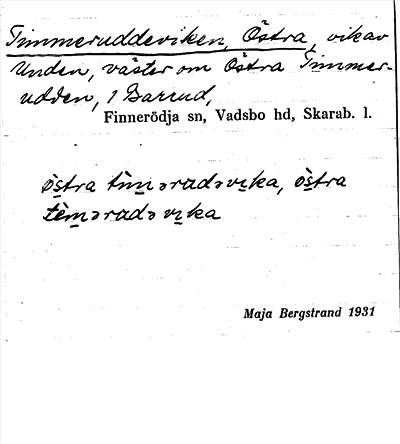 Timmeruddeviken, Östra, vik av
Unden, väster om Östra Timmer-
udden, 1 Barrud,
Finnerödja sn, Vadsbo hd, Skarab. l.
östra tìm̲əradəvi̲ka, östra
tèm̲əradə vi̲ka
Maja Bergstrand 1931